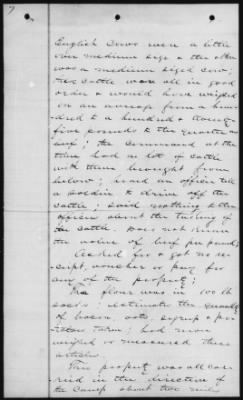 7
English Cows were a little
over medium size & the other
was a medium sized cow;
The cattle were all in good
order & would have weighed
on an average from a hun-
dred to a hundred & twenty
five pounds to the quarter
the command at the
time had no lot of cattle
with them brought from
below; heard an officer tell
a soldier to drive off the
cattle; said nothing to the
officer about the taking of
the cattle. Does not know
the value of beef per pound;
Asked for & got no re-
ceipt, voucher or pay for
any of the property;
The flour was in 100 lb
sacks; estimates the quantity
of bacon, oats, syrup & po-
tatoes taken; had never
weighed or measured these
articles.
This property was all car-
ried in the direction of
the Camp about two miles